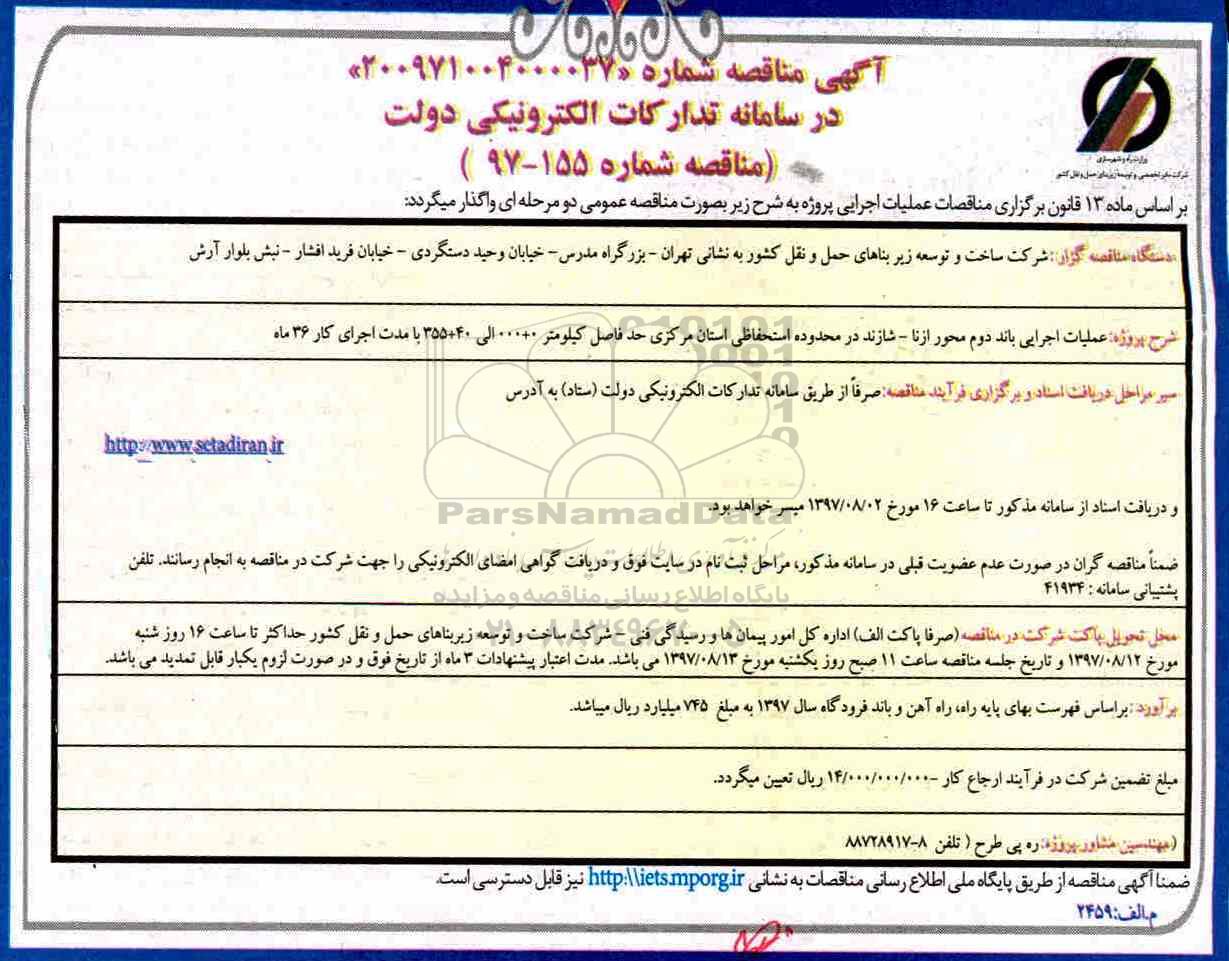 آگهی مناقصه شماره «۲۰۰۹۷۱۰۰۴۰۰۰۰۳۷»
در سامانه تدارکات الکترونیکی دولت
(مناقصه شماره ۱۵۵-۹۷ )
وزارت راه و شهرسازی
شرکت مادر تخصصی و توسعه زیربناهای حمل و نقل کشور
بر اساس ماده ۱۳ قانون برگزاری مناقصات عملیات اجرایی پروژه به شرح زیر بصورت مناقصه عمومی دو مرحله ای واگذار میگردد:
دستگاه مناقصه گزار: شرکت ساخت و توسعه زیر بناهای حمل و نقل کشور به نشانی تهران - بزرگراه مدرس- خیابان وحید دستگردی - خیابان فرید افشار - نبش بلوار آرش
شرح پروژه: عملیات اجرایی باند دوم محور ازنا - شازند در محدوده استحفاظی استان مرکزی حد فاصل کیلومتر ۰+۰۰۰ الی ۴۰+۳۵۵ با مدت اجرای کار ۳۶ ماه
سیر مراحل دریافت اسناد و برگزاری فرآیند مناقصه: صرفاً از طریق سامانه تدارکات الکترونیکی دولت (ستاد) به آدرس
http://www.setadiran.ir
و دریافت اسناد از سامانه مذکور تا ساعت ۱۶ مورخ ۱۳۹۷/۰۸/۰۲ میسر خواهد بود.
ParsNamadData
ضمناً مناقصه گران در صورت عدم عضویت قبلی در سامانه مذکور، مراحل ثبت نام در سایت فوق و دریافت گواهی امضای الکترونیکی را جهت شرکت در مناقصه به انجام رسانند. تلفن
پشتیبانی سامانه : ۴۱۹۳۴
پایگاه اطلاع رسانی مناقصه و مزایده
محل تحویل پاکت شرکت در مناقصه (صرفا پاکت الف) اداره کل امور پیمان ها و رسیدگی فنی - شرکت ساخت و توسعه زیربناهای حمل و نقل کشور حداکثر تا ساعت ۱۶ روز شنبه
مورخ ۱۳۹۷/۰۸/۱۲ و تاریخ جلسه مناقصه ساعت ۱۱ صبح روز یکشنبه مورخ ۱۳۹۷/۰۸/۱۳ می باشد. مدت اعتبار پیشنهادات ۳ ماه از تاریخ فوق و در صورت لزوم یکبار قابل تمدید می باشد.
برآورد: براساس فهرست بهای پایه راه، راه آهن و باند فرودگاه سال ۱۳۹۷ به مبلغ ۷۴۵ میلیارد ریال میباشد.
مبلغ تضمین شرکت در فرآیند ارجاع کار -۱۴/۰۰۰/۰۰۰/۰۰۰ ریال تعیین میگردد.
(مهندسین مشاور پروژه: ره پی طرح ( تلفن ۸-۸۸۷۲۸۹۱۷
ضمنا آگهی مناقصه از طریق پایگاه ملی اطلاع رسانی مناقصات به نشانی http:\\iets.mporg.ir نیز قابل دسترسی است.
م.الف: ۲۴۵۹